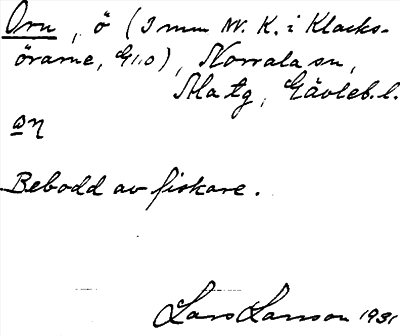 Orn, ö (3 mm N. K. i Klacks-
örarne, G110), Norrala sn,
Ala tg, Gävleb. l.
Bebodd av fiskare.
Lars Larsson 1931